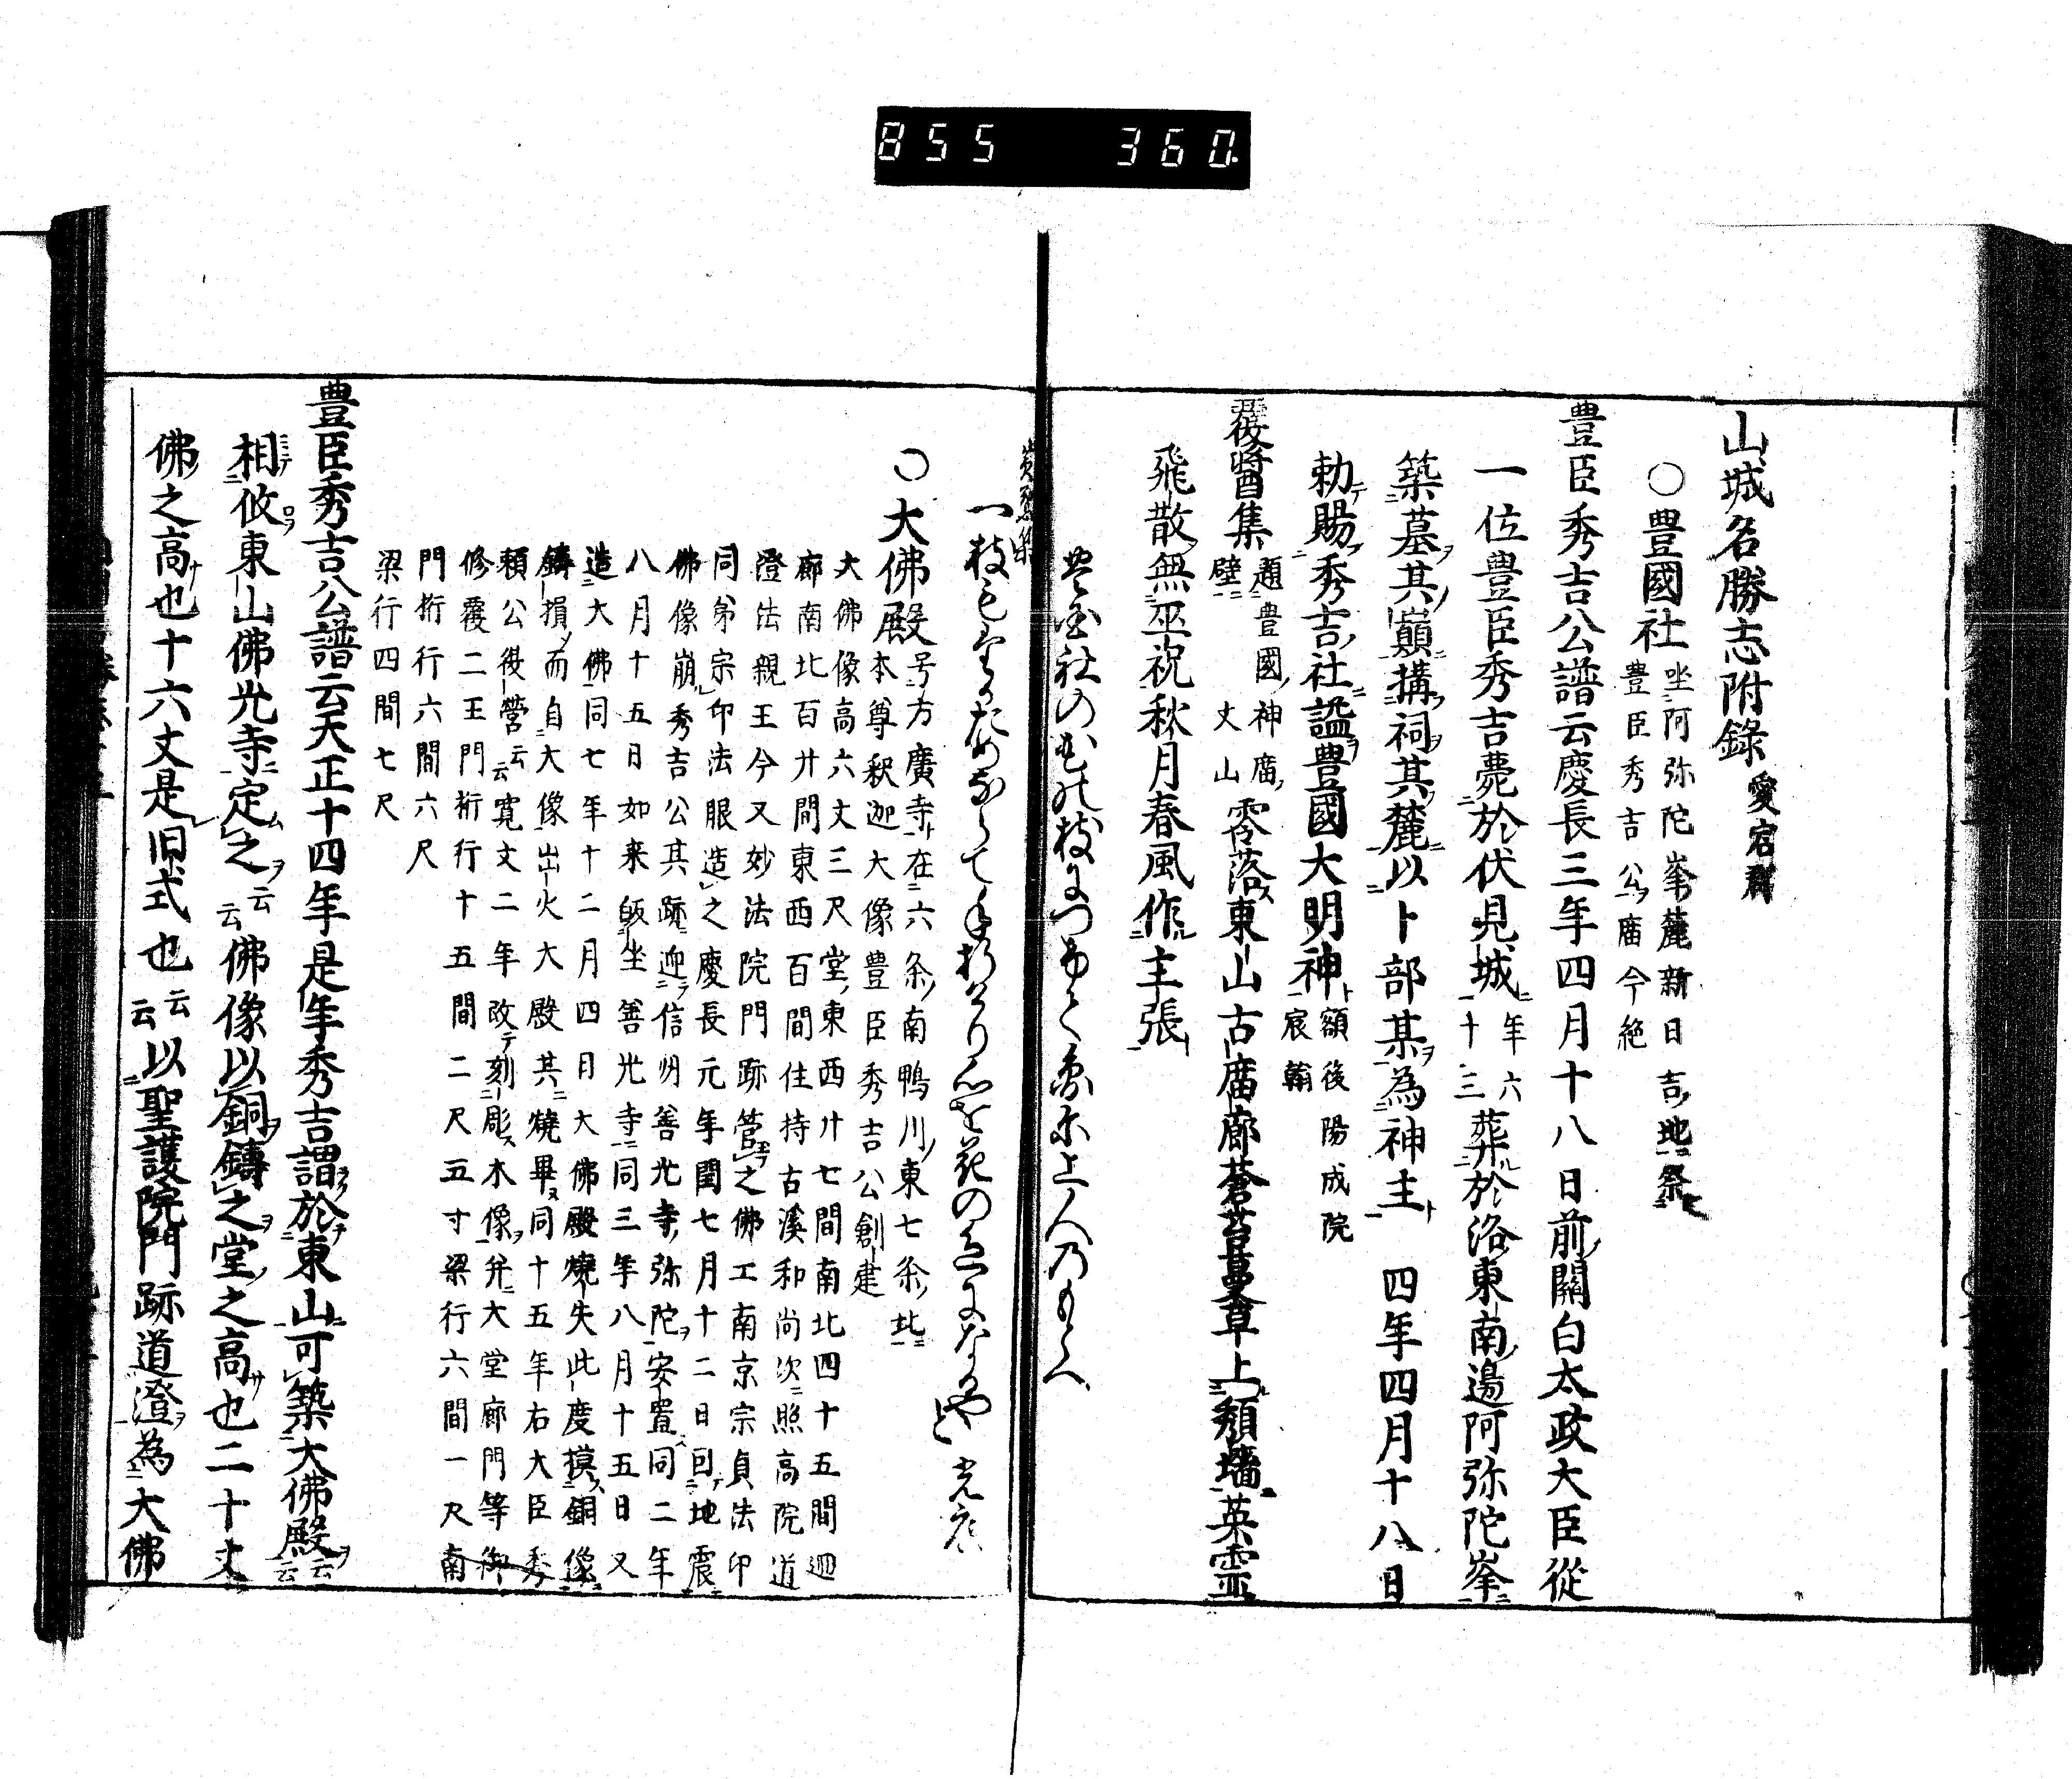 855 360
山城名勝志附録 愛宕郡
○豊國社 坐阿弥陀峯麓新日吉地祭
豊臣秀吉公廟今絶
豊臣秀吉公譜云慶長三年四月十八日前關白太政大臣從
一位豊臣秀吉薨於伏見城 年六十三 葬於洛東南邊阿弥陀峯
築墓其巔搆祠其麓以卜部某為神主 四年四月十八日
勅賜秀吉社謚豊國大明神 額後陽成院宸翰
覆醤集 題豊國神廟壁 丈山 零落東山古廟廊蒼苔蔓草上頽墻英霊
飛散無巫祝秋月春風作主張
一枝も
○大佛殿 号方廣寺在六条南鴨川東七条北
本尊釈迦大像豊臣秀吉公創建
大佛像高六丈三尺堂東西廾七間南北四十五間迴
廊南北百廾間東西百間住持古溪和尚次照高院道
澄法親王今又妙法院門跡管之佛工南京宗貞法印
同弟宗印法眼造之慶長元年閏七月十二日回地震
佛像崩秀吉公其跡迎信州善光寺弥陀安置同二年
八月十五日如来皈坐善光寺同三年八月十五日又
造大佛同七年十二月四日大佛殿燒失此度摸銅像
鑄損而自大像出火大殿其燒畢同十五年右大臣秀
頼公後營云云寛文二年改刻彫木像并大堂廊門等御
修覆二王門桁行十五間二尺五寸梁行六間一尺南
門桁行六間六尺
梁行四間七尺
豊臣秀吉公譜云天正十四年是年秀吉謂於東山可築大佛殿云云
相攸東山佛光寺定之云云佛像以銅鑄之堂之高也二十丈
佛之高也十六丈是旧式也云云以聖護院門跡道澄為大佛